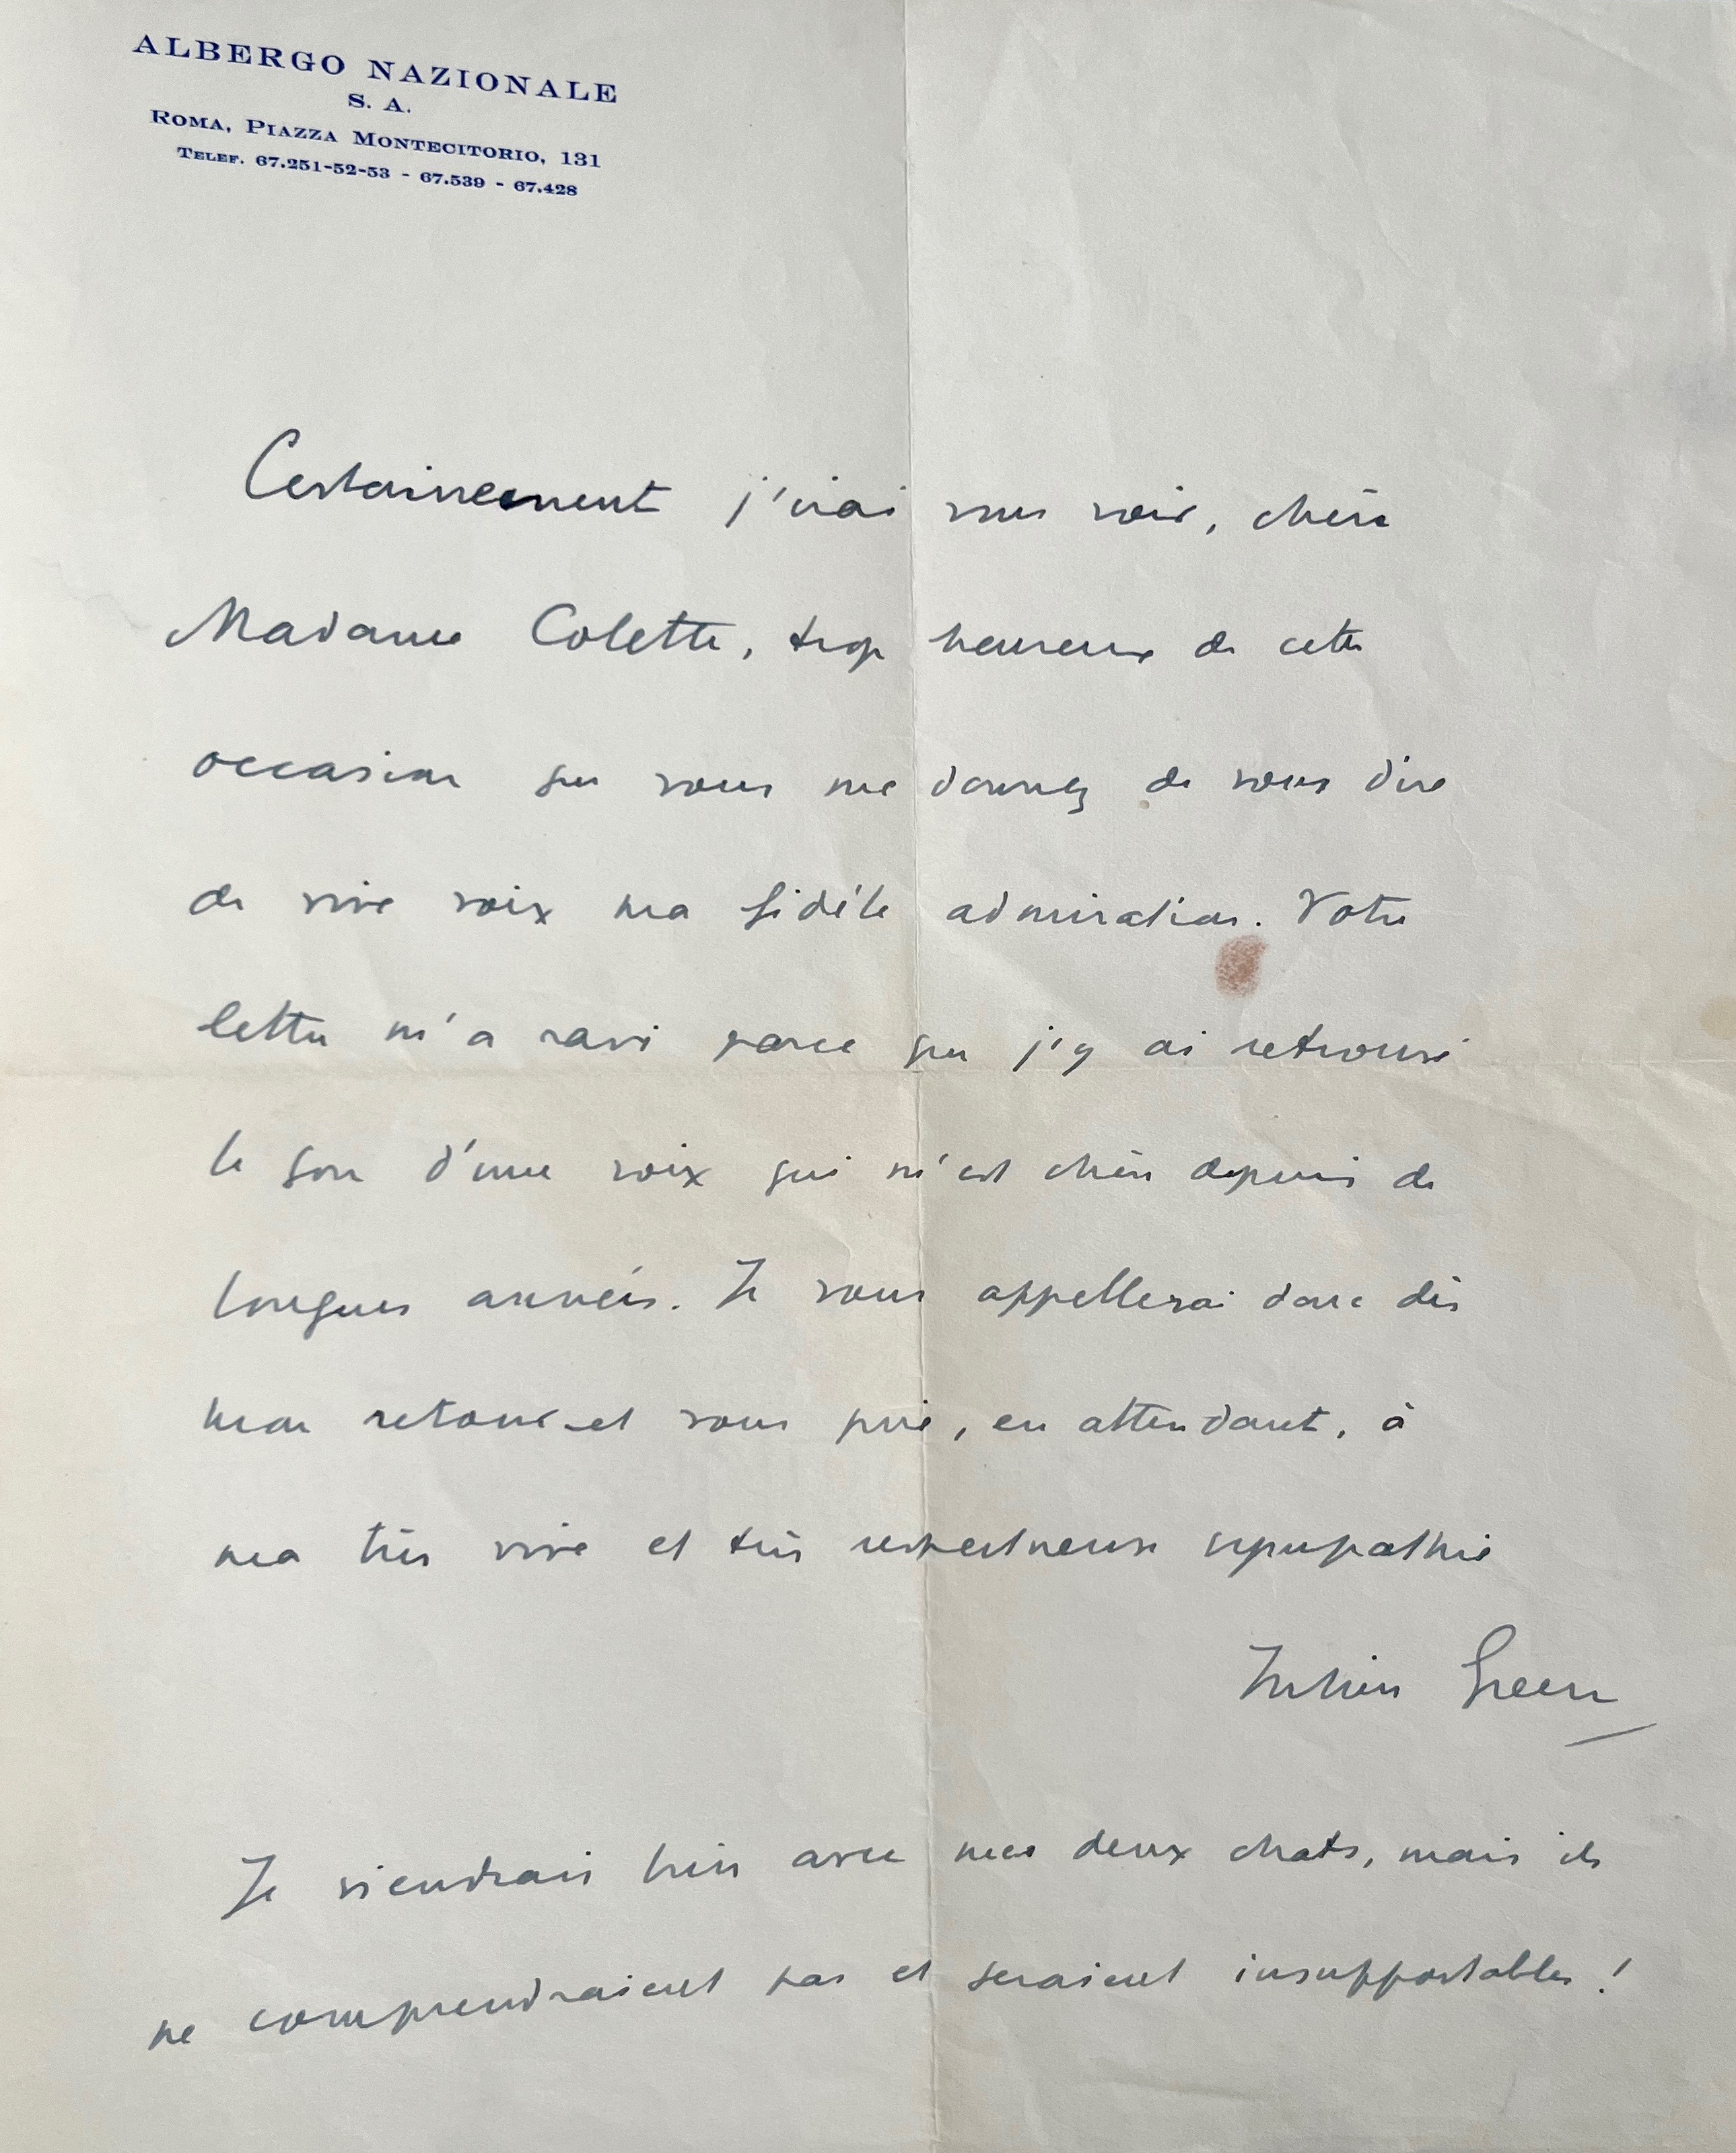 ALBERGO NAZIONALE
S. A.
ROMA, PIAZZA MONTECITORIO, 131
TELEF. 67.251-52-53 - 67.539 - 67.428
Certainement j'irai vous voir, chère
Madame Colette, trop heureux de cette
occasion que vous me donnez de vous dire
de vive voix ma fidèle admiration. Votre
lettre m'a ravi parce que j'y ai retrouvé
le son d'une voix qui m'est chère depuis de
longues années. Je vous appellerai donc dès
mon retour et vous prie, en attendant, à
ma très vive et très respectueuse sympathie
Julien Green
Je viendrais bien avec mes deux chats, mais ils
ne comprendraient pas et seraient insupportables !